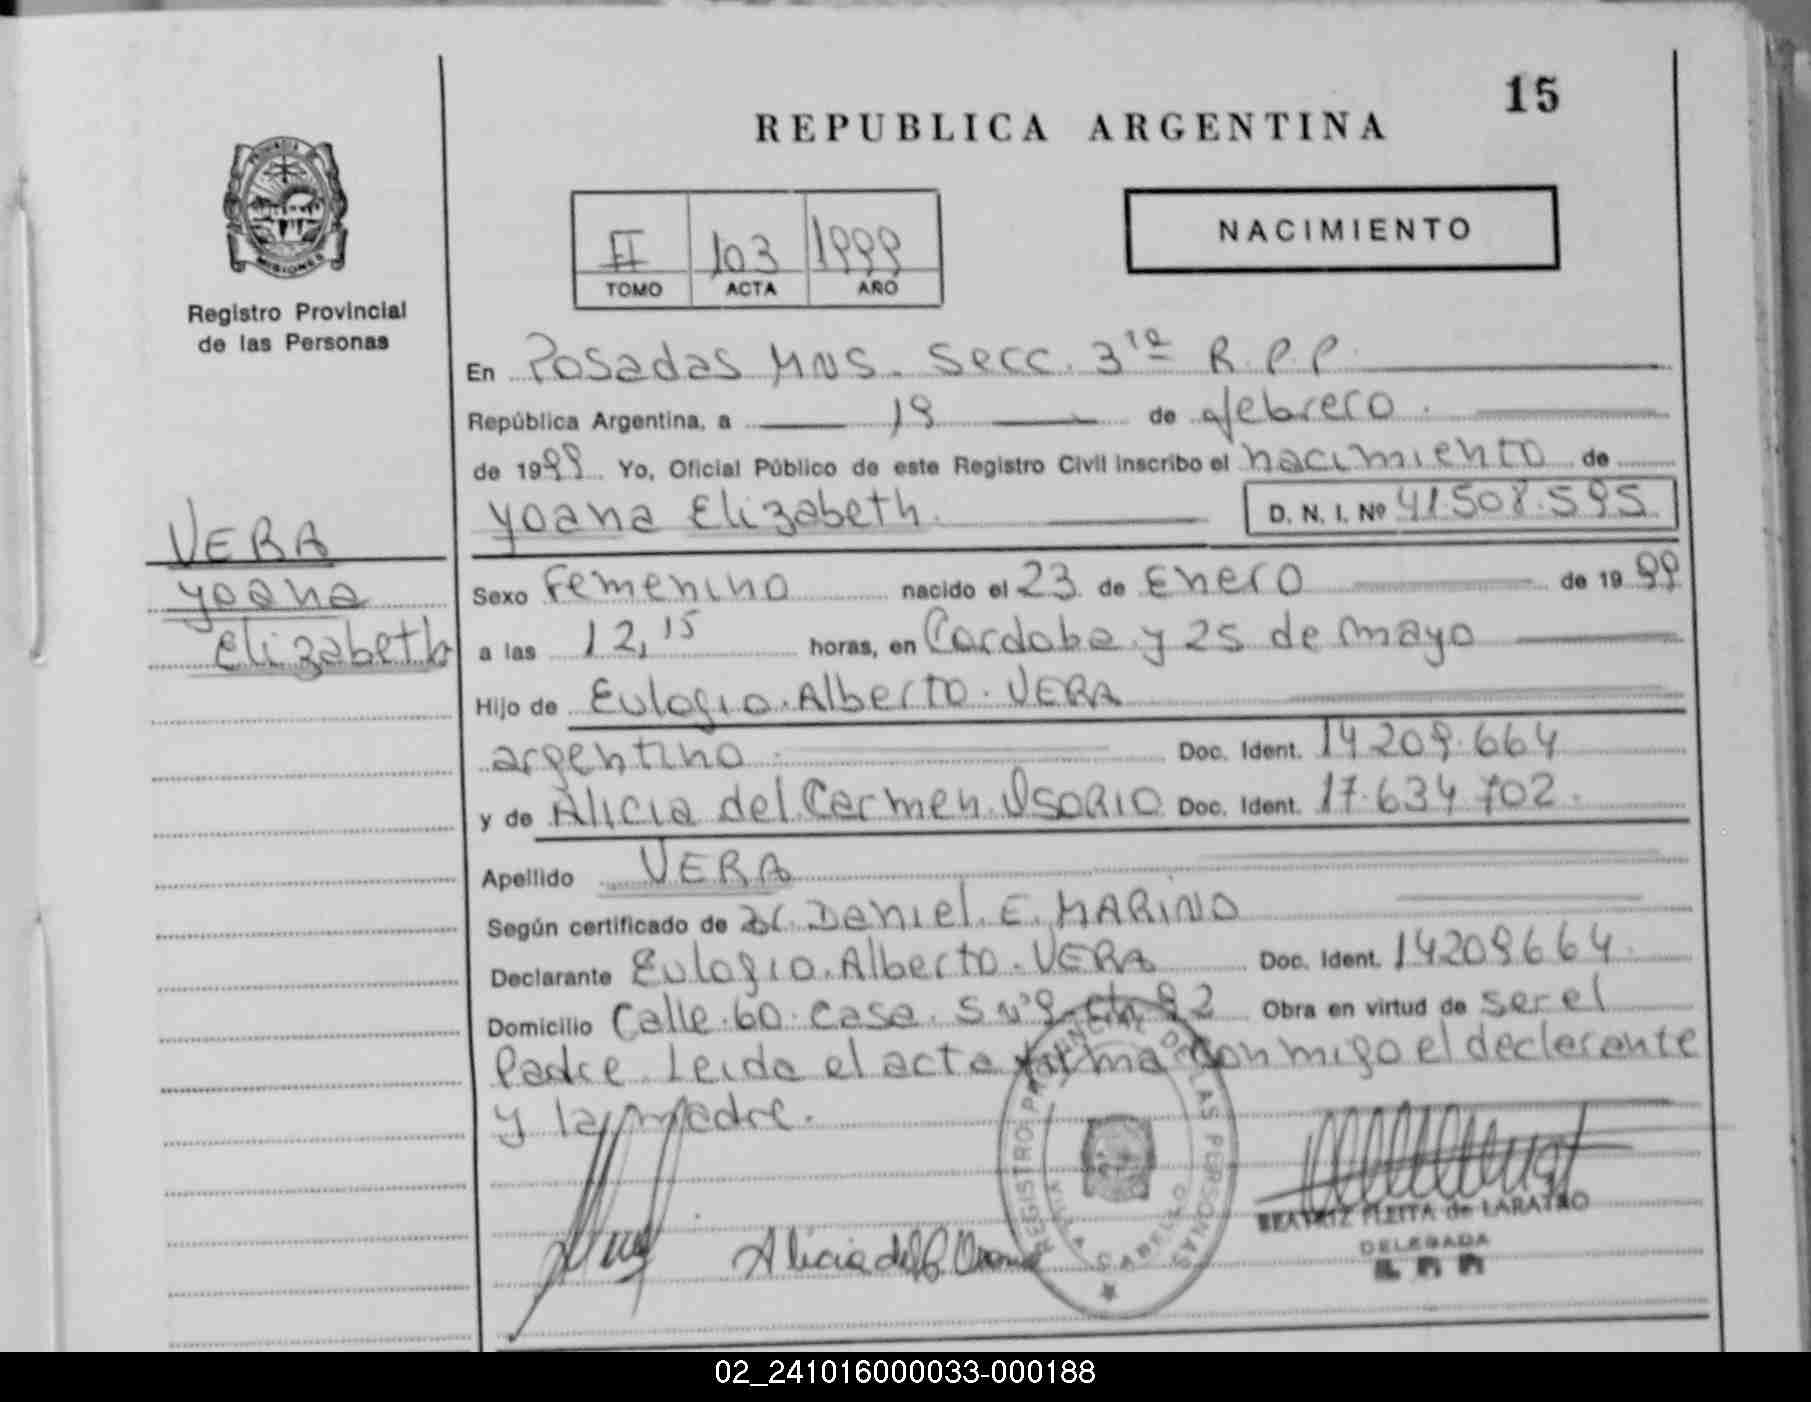 15
REPUBLICA ARGENTINA
PROVINCIA DE
MISIONES
Registro Provincial
de las Personas
NACIMIENTO
II 103 1999
TOMO ACTA AÑO
En Posadas MNS. Secc. 3ra R.P.P.
República Argentina, a 19 de febrero.
de 1999 Yo, Oficial Público de este Registro Civil inscribo el nacimiento de
Yoana Elizabeth. D. N. I. Nº 41.508.595
VERA
Yoana
Elizabeth
Sexo Femenino nacido el 23 de Enero de 1999
a las 12,15 horas, en Cordoba y 25 de mayo
Hijo de Eulogio Alberto VERA
argentino Doc. Ident. 14.209.664
y de Alicia del Carmen OSORIO Doc. Ident. 17.634.702.
Apellido VERA
Según certificado de Dr. Daniel E. MARINO
Declarante Eulogio Alberto VERA Doc. Ident. 14209664.
Domicilio Calle 60 casa S Nº 9 ch 92 Obra en virtud de ser el
Padre Leida el acta firma conmigo el declarante
y la madre.
REGISTRO PROVINCIAL DE LAS PERSONAS
VILLA CABELLO
Alicia del C.
BEATRIZ FLEITA de LARATRO
DELEGADA
02_241016000033-000188